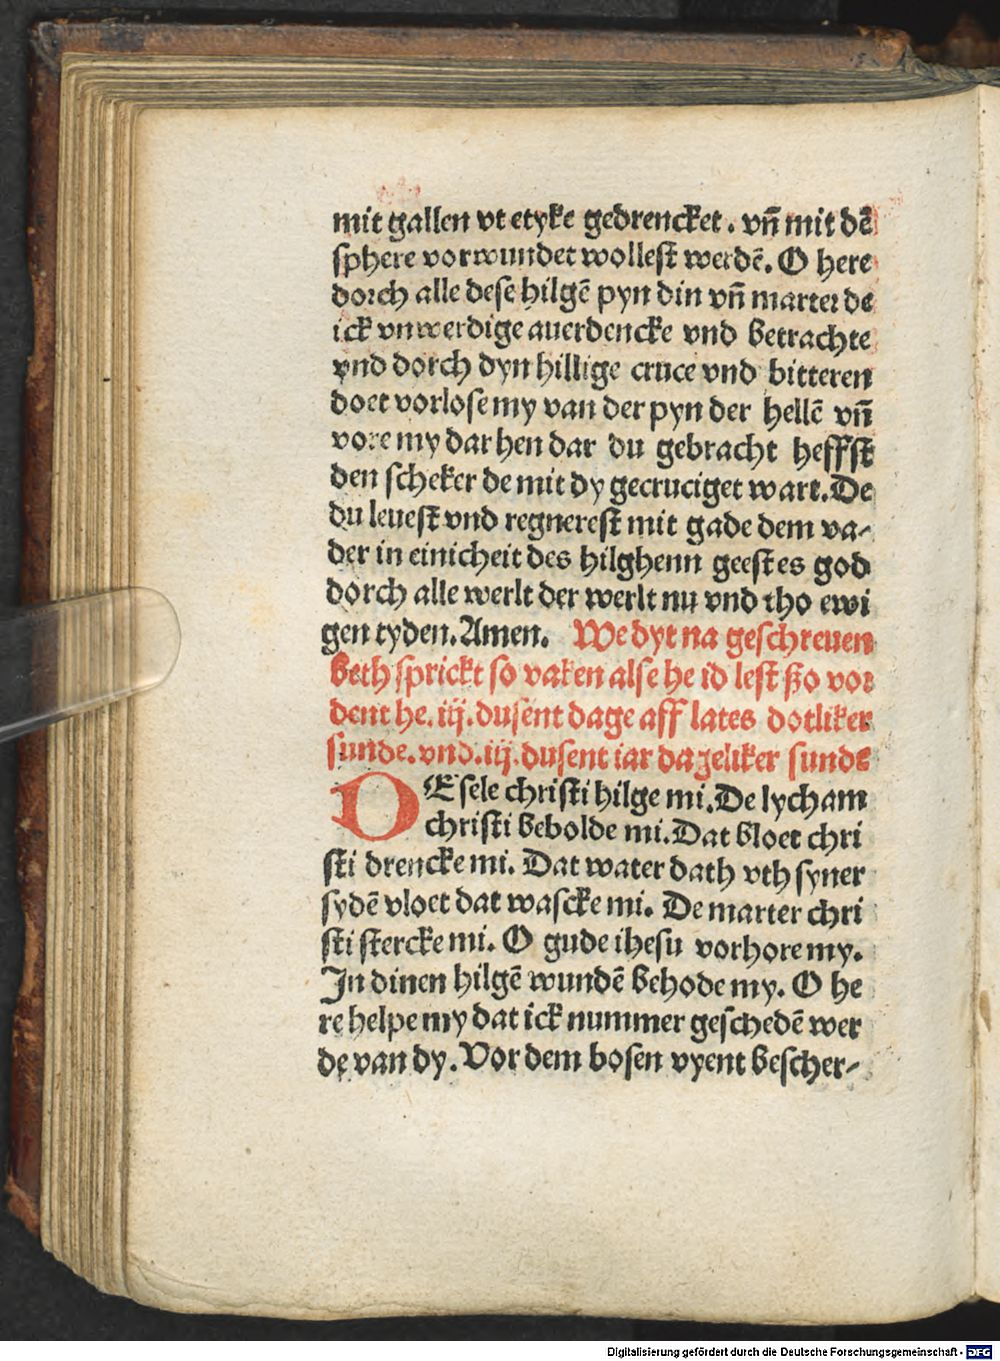 mit gallen vt etyke gedrencket. vn̄ mit dē
sphere vorwundet wollest werdē. O here
dorch alle dese hilgē pyn din vn̄ marter de
ick vnwerdige auerdencke vnd betrachte
vnd dorch dyn hillige cruce vnd bitteren
doet vorlose my van der pyn der hellē vn̄
vore my dar hen dar du gebracht heffst
den scheker de mit dy gecruciget wart. De
du leuest vnd regnerest mit gade dem va-
der in einicheit des hilghenn geestes god
dorch alle werlt der werlt nu vnd tho ewi
gen tyden. Amen. We dyt na geschreuen
beth sprickt so vaken alse he id lest ßo vor
dent he. iij. dusent dage aff lates dotliker
sunde. vnd. iij. dusent iar dageliker sunde
DE sele christi hilge mi. De lycham
christi beholde mi. Dat bloet chri
sti drencke mi. Dat water dath vth syner
sydē vloet dat wascke mi. De marter chri
sti stercke mi. O gude ihesu vorhore my.
In dinen hilgē wundē behode my. O he
re helpe my dat ick nummer geschedē wer
de van dy. Vor dem bosen vyent bescher-
Digitalisierung gefördert durch die Deutsche Forschungsgemeinschaft - DFG